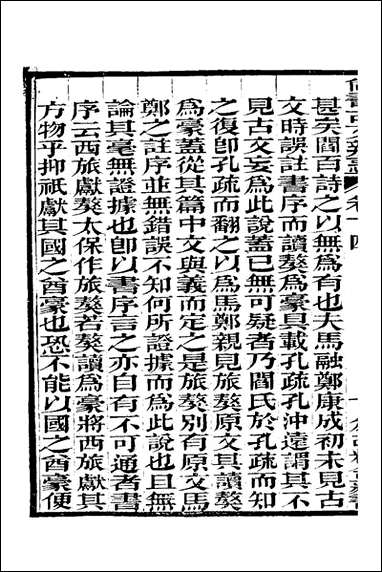 甚矣閻百詩之以無爲有也夫馬融鄭康成初未見古
文時誤註書序而讀獒爲豪具載孔疏孔沖遠謂其不
見古文妄爲此說蓋已無可疑者乃閻氏於孔疏而知
之復卽孔疏而翻之以爲馬鄭親見旅獒原文其讀獒
爲豪蓋從其篇中文與義而定之是旅獒別有原文馬
鄭之註序並無錯誤不知何所證據而爲此說也且無
論其毫無證據也卽以書序言之亦自有不可通者書
序云西旅獻獒太保作旅獒若獒讀爲豪將西旅獻其
方物乎抑祇獻其國之酋豪也恐不能以國之酋豪便